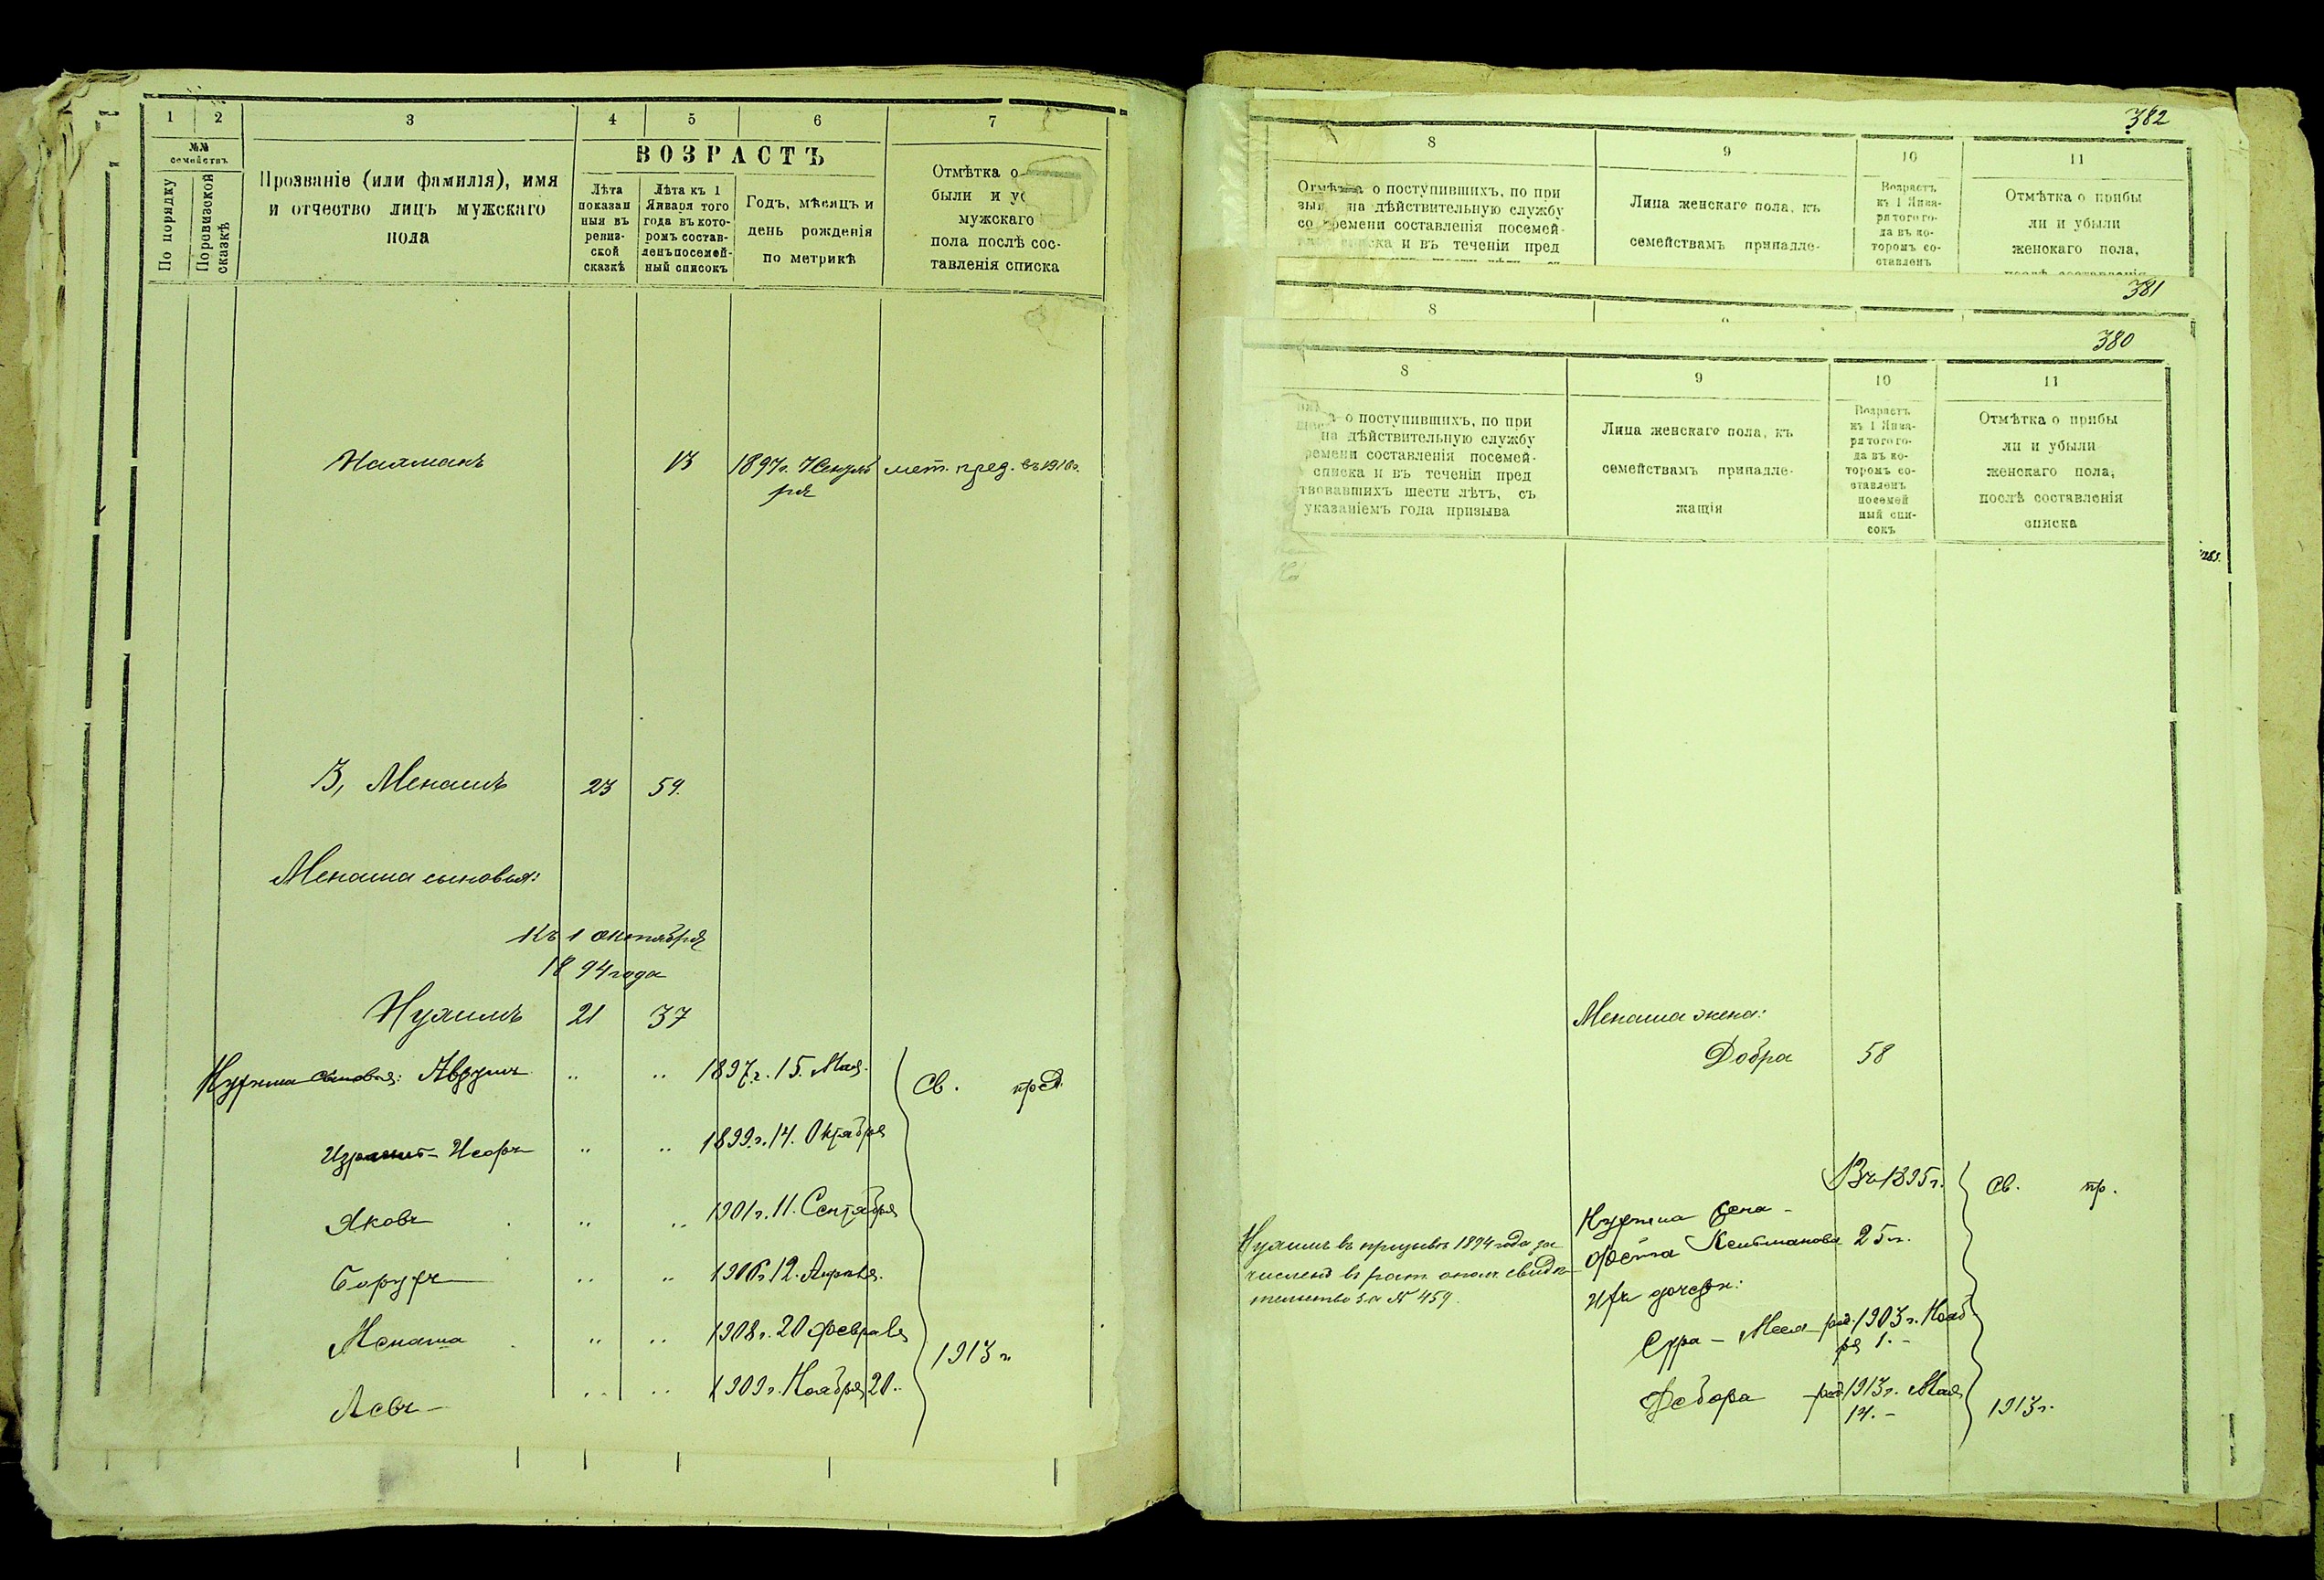 1 2 3 4 5 6 7
№№ семействъ
По порядку
По ревизской сказкѣ
Прозваніе (или фамилія), имя
и отчество лицъ мужскаго
пола
ВОЗРАСТЪ
Лѣта
показан
ныя въ
ревиз-
ской
сказкѣ
Лѣта къ 1
Января того
года въ кото-
ромъ состав-
ленъ посемей-
ный списокъ
Годъ, мѣсяцъ и
день рожденія
по метрикѣ
Отмѣтка о
были и у
мужскаго
пола послѣ сос-
тавленія списка
13 1897г. мет. пред. въ 1910г.
3, Менашъ 23 59.
Менаша сыновья:
Къ 1 октября
1894 года
Нухимъ 21 37
Нухима сыновья: Аврумъ " " 1897г. 15. Мая. Св. пред.
Израиль- " " 1899г. 14. Октября
Яковъ " " 1901г. 11. Сентября
Борухъ " " 1906г. 12. Апрѣля.
Менаша " " 1908г. 20 февраля
1913г.
Левъ- " " 1909г. Ноября 20..
382
8 9 10 11
о поступившихъ, по при
на дѣйствительную службу
времени составленія посемей-
и въ теченіи пред
Лица женскаго пола, къ
семействамъ принадле-
Возрастъ
къ 1 Янва-
ря того го-
да въ ко-
торомъ со-
ставленъ
Отмѣтка о прибы
ли и убыли
женскаго пола,
послѣ составленія
381
8
9
380
8 9 10 11
о поступившихъ, по при
на дѣйствительную службу
ремени составленія посемей-
списка и въ теченіи пред
твовавшихъ шести лѣтъ, съ
указаніемъ года призыва
Лица женскаго пола, къ
семействамъ принадле-
жащія
Возрастъ
къ 1 Янва-
ря того го-
да въ ко-
торомъ со-
ставленъ
посемей
ный спи-
сокъ
Отмѣтка о прибы
ли и убыли
женскаго пола,
послѣ составленія
списка
Менаша жена:
Добра 58
Въ 1895г. Св. пр.
Нухима жена-
25 л.
Нухимъ въ призывъ 1894 года за-
численъ въ рат. опол. свидѣ-
тельство за № 459.
ихъ дочери:
Сура - род. 1903г. Нояб
ря 1.-
Дебора - род. 1913г. Мая
14.-
1913г.